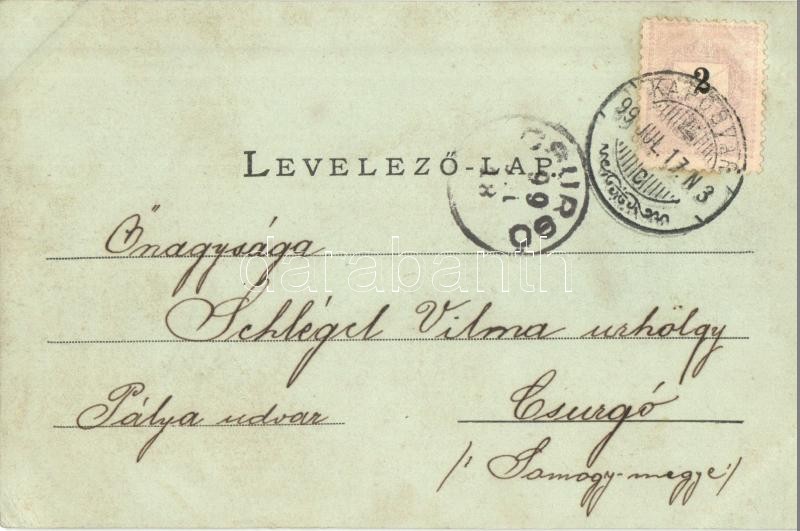 2
KAPOSVÁR
99 JUL. 17. N 3
C
CSURGÓ
99
18
LEVELEZŐ-LAP.
Őnagysága
darabanth
Schlégel Vilma urhölgy
Pálya udvar
Csurgó
/: Somogy-megye :/